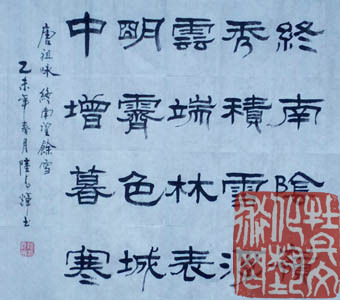 終南陰嶺
秀積雪浮
雲端林表
明霽色城
中增暮寒
唐祖咏 終南望餘雪
乙未年春月陸書